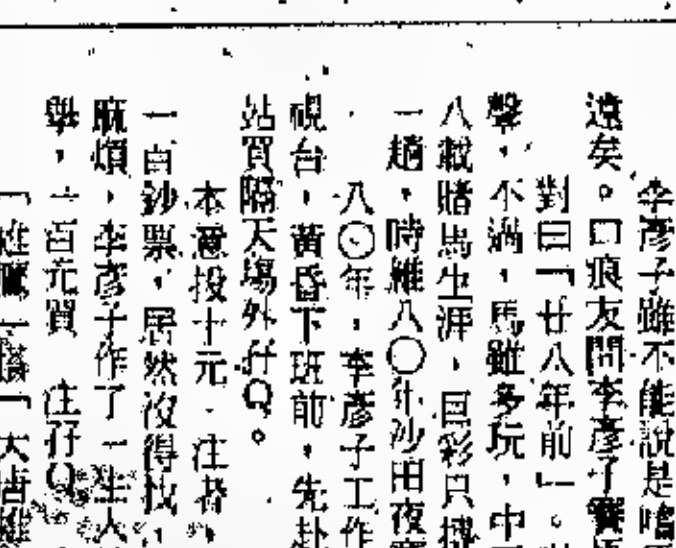 李彥子雖不能說是嗜
遠矣。口痕友問李彥子
對曰「廿八年前」。
聲,不過,馬雖多玩,中
八載賭馬生涯,巨彩只搏
一趟,時維八〇年沙田夜
八〇年,李彥子工作
硯台,黃昏下班前,先
站買隔天場外孖Q。
本意投十元一注者,
一百鈔票,居然沒得找,
麻煩,李彥子作了一生人
舉,一百元買一注孖Q
「雄鷹」搭「大